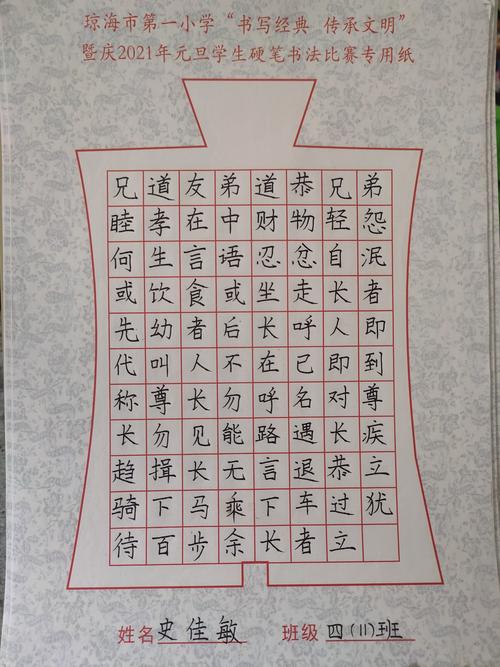 琼海市第一小学“书写经典 传承文明”
暨庆2021年元旦学生硬笔书法比赛专用纸
兄道友弟道恭兄弟
睦孝在中财物轻怨
何生言语忍忿自泯
或饮食或坐走长者
先幼者后长呼人即
代叫人不在己即到
称尊长勿呼名对尊
长勿见能路遇长疾
趋揖长无言退恭立
骑下马乘下车过犹
待百步余长者立
姓名史佳敏 班级四(11)班